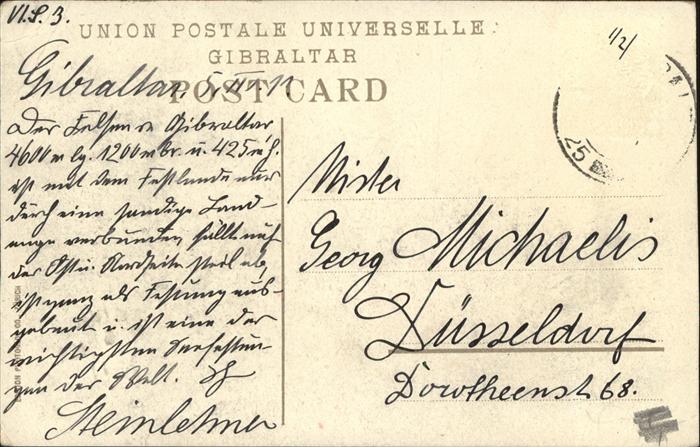 VI.S.3.
UNION POSTALE UNIVERSELLE
GIBRALTAR
POST CARD
Gibraltar, 11
Der Felsen v. Gibraltar
4600 m lg. 1200 m br. u. 425 m h.
ist mit dem Festlande nur
durch eine sandige Land-
enge verbunden, fällt auf
der Ost u. Nordseite steil ab,
ist ganz als Festung aus-
gebaut u. ist eine der
wichtigsten Seefestun-
gen der Welt.
Steinlehner
1/2/
25
Mister
Georg Michaelis
Düsseldorf
Dorotheenst. 68.